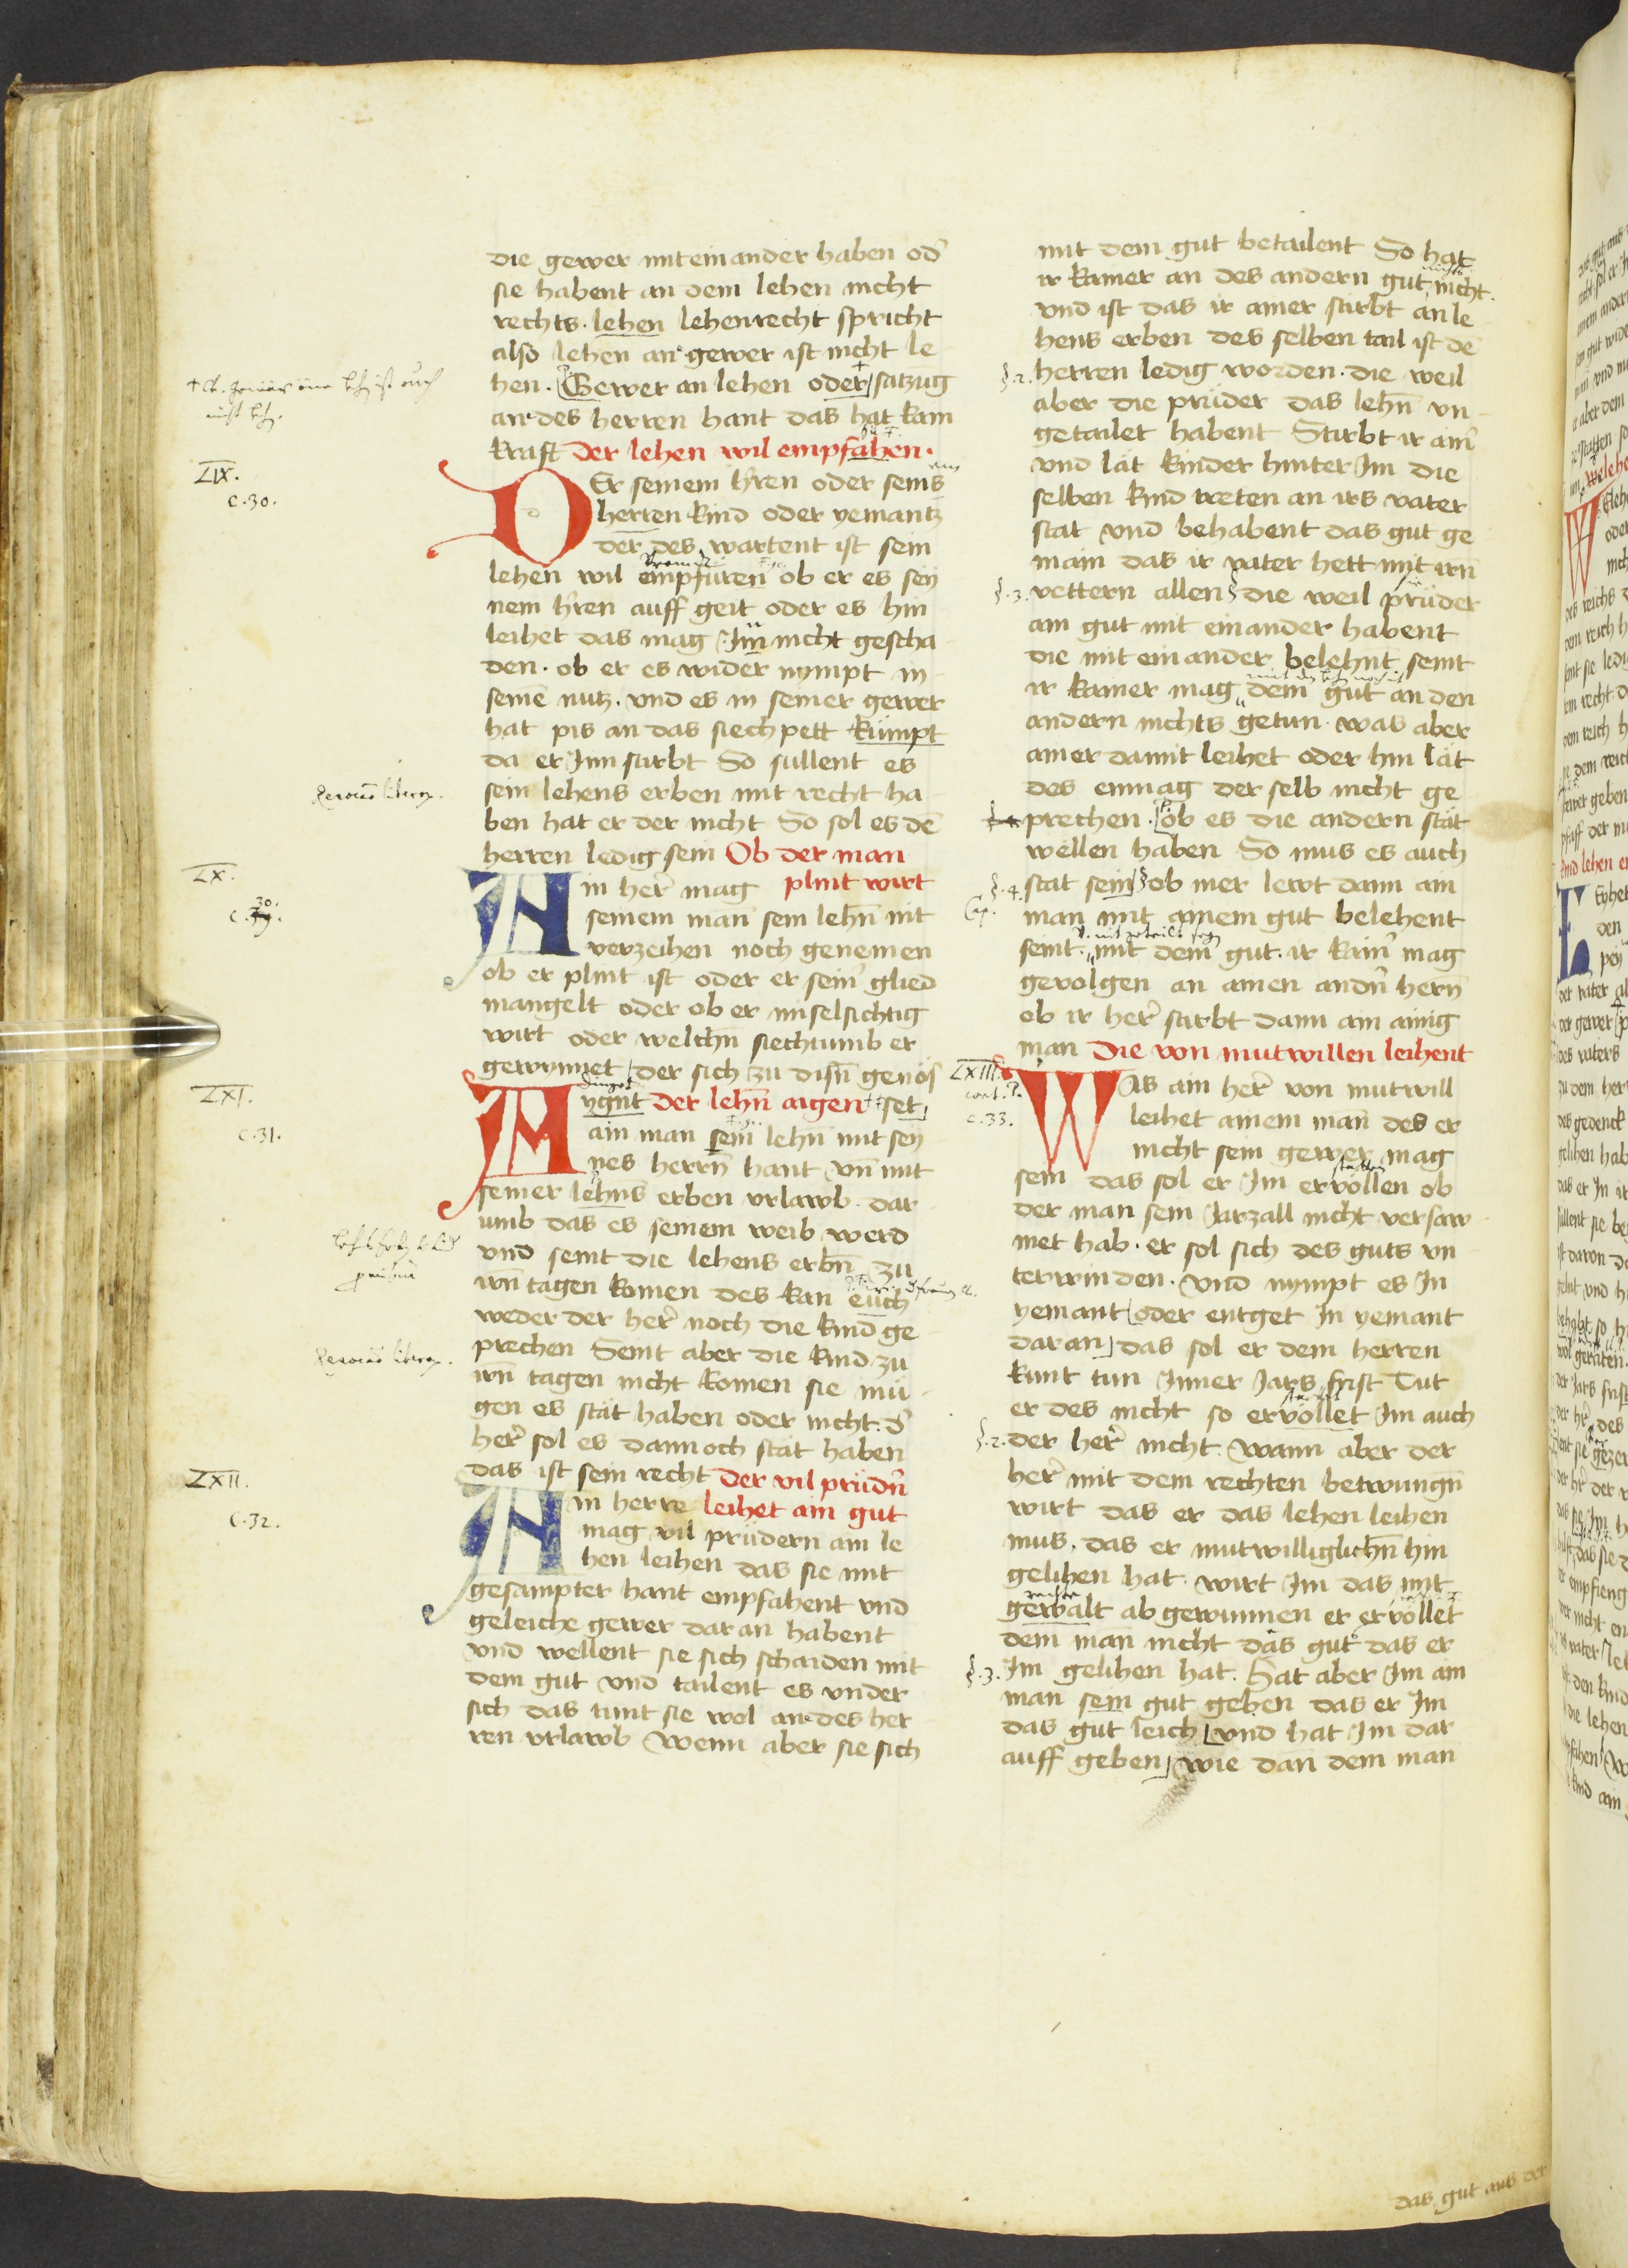 die gewer mit ein ander haben od̉
sie habent an dem lehen nicht
rechts. lehen lehenrecht spricht
also lehen an gewer ist nicht le
hen. Gewer an lehen oder satzug
an des herren hant das hat kain
kraft der lehen wil empfahen.
LIX.
c. 30.
DEr seinem hren oder seins
herren kind oder yemantz
der des wartent ist sein
lehen wil empfüren ob er es sey
nem hren auff geit oder es hin
leihet das mag Im nicht gescha
den. ob er es wider nympt in
seinē nutz. vnd es in seiner gewer
hat pis an das siechpett kümpt
da er Inn stirbt So sullent es
sein lehens erben mit recht ha
ben hat er der nicht So sol es dē
herren ledig sein Ob der man
plint wirt
LX.
c. 30.
Ain her̉ mag
seinem man sein leh̄n nit
verzeihen noch genemen
ob er plint ist oder er sein̉ glied
mangelt oder ob er miselsichtig
wirt oder welch̄n siechtumb er
gewynnet der sich zu dis̄n genös
LXI.
c. 31.
ygnt der leh̄n aigen set
ain man sein leh̄n mit sey
nes herr̄n hant vn̄ mit
seiner lehns erben vrlawb. dar
umb das es seinem weib werd
vnd seint die lehens erb̄n zu
ir̄n tagen komen des kan euch
weder der her̉ noch die kind ge
prechen Seint aber die kind zu
ir̄n tagen nicht komen sie mü
gen es stät haben oder nicht. d̉
her̉ sol es dannoch stät haben
das ist sein recht der vil prüdn̉
LXII.
c. 32.
Ain herre leihet ain gut
mag vil prüdern ain le
hen leihen das sie mit
gesampter hant empfahent vnd
geleiche gewer dar an habent
vnd wellent sie sich schaiden mit
dem gut vnd tailent es vnder
sich das tunt sie wol an des her
ren vrlawb Wenn aber sie sich
mit dem gut betailent So hat
ir kainer an des andern gut nicht.
vnd ist das ir ainer stirbt an le
hens erben des selben tail ist dē
§. 2. herren ledig worden. die weil
aber die prüder das leh̄n vn
getailet habent Stirbt ir ain̉
vnd lät kinder hinter Im die
selben kind treten an irs vater
stat vnd behabent das gut ge
main das ir vater hett mit ir̄n
§. 3. vettern allen die weil prüder
ain gut mit einander habent
die mit ein ander belehnt seint
ir kainer mag dem gut an den
andern nichts getun. was aber
ainer damit leihet oder hin lät
des enmag der selb nicht ge
prechen. ob es die andern stät
wellen haben So mus es auch
§. 4. stat sein ob mer lewt dann ain
man mit ainem gut belehent
seint. mit dem gut. ir kain̉ mag
gevolgen an ainen andn̉ her̄n
ob ir her̉ stirbt dann ain ainig
man die von mutwillen leihent
LXIII.
c. 33.
WAs ain her̉ von mutwill
leihet ainem man des er
nicht sein gewer mag
sein das sol er Im ervollen ob
der man sein Jarzall nicht versaw
met hab. er sol sich des guts vn
terwinden. vnd nympt es In
yemant oder entget In yemant
daran das sol er dem herren
kunt tun Inner Jars frist Tut
er des nicht so ervollet Im auch
§. 2. der her̉ nicht. wann aber der
her̉ mit dem rechten betwunḡn
wirt das er das lehen leihen
mus. das er mutwilliglich̄n hin
gelihen hat. wirt Im das mit
gewalt ab gewunnen er ervollet
dem man nicht das gut das er
§. 3. Im gelihen hat. Hat aber Im ain
man sein gut geben das er Im
das gut leich vnd hat Im dar
auff geben wie dan dem man
das gut aus der